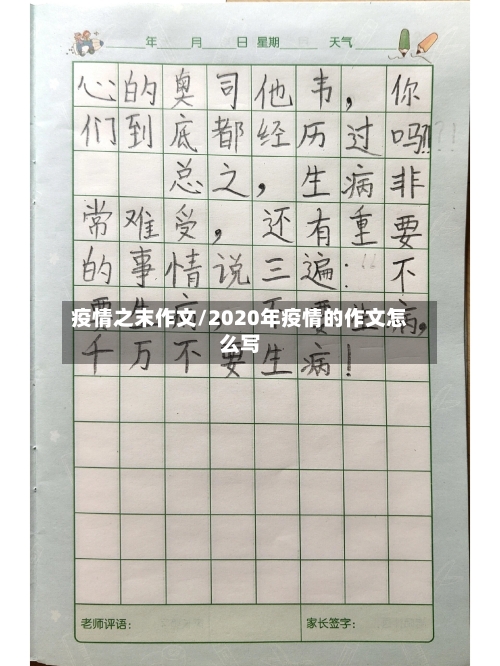 年 月 日 星期 天气
心的奥司他韦，你
们到底都经历过吗?!!
总之，生病非
常难受，还有重要
的事情说三遍：不
要生病，不要生病，
疫情之末作文/2020年疫情的作文怎
么写
千万不要生病！
老师评语： 家长签字：